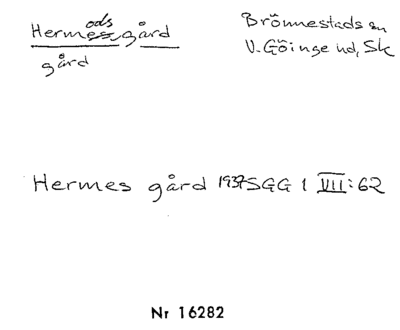 Hermodsgård
gård
Brönnestads sn
V. Göinge hd, Sk
Hermes gård 1937 SGG 1 VII:62
Nr 16282